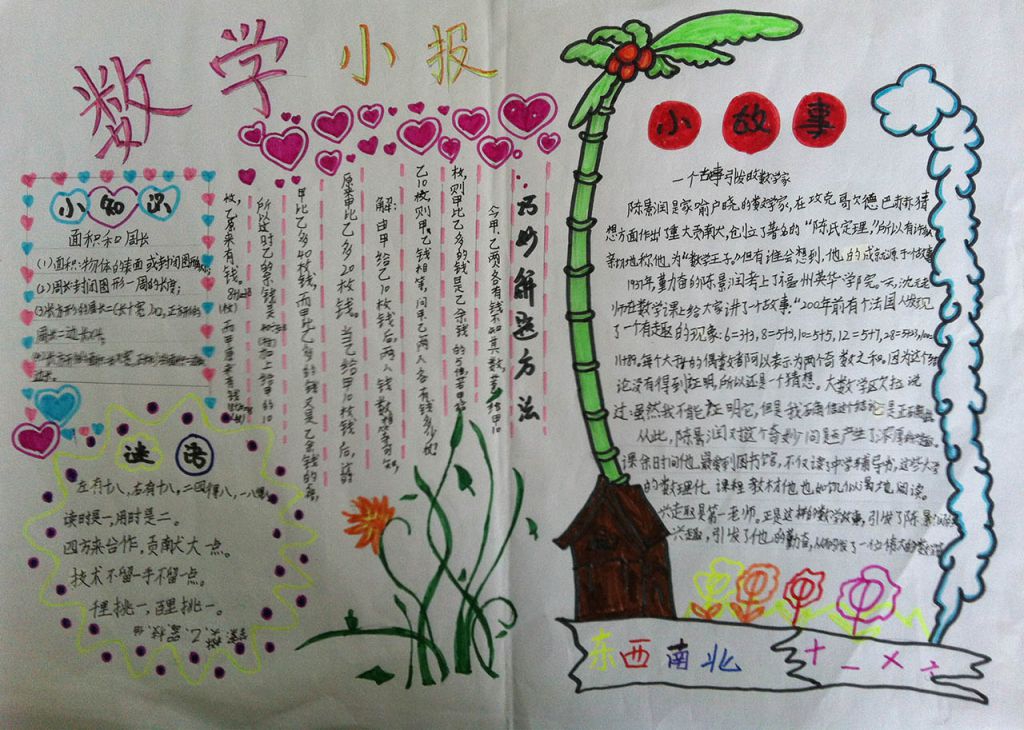 数学小报
小知识
面积和周长
(1)面积:物体的表面或封闭图
(2)周长封闭图形一周的长度;
巧妙解题方法
今甲、乙两各有钱不
枚,则甲比乙多的钱是乙余钱的
乙10枚,则甲、乙钱相等,问甲、乙两人各有钱多少枚
解:由甲给乙10枚钱后,两人钱数相等可知,
原来甲比乙多20枚钱。当乙给甲10枚钱后,这时
甲比乙多40枚钱,而甲比乙多的钱又是乙余钱的
所以这时乙的余钱是
枚,乙原来有钱
谜语
左有十八,右有十八,二四得八,一八
读时是一,用时是二。
四方来合作,贡献大一点。
技术不留一手不留一点。
千里挑一,百里挑一。
小故事
一个古事引发的数学家
陈景润是家喻户晓的数学家,在攻克哥尔德巴赫猜
想方面作出了重大贡献,创立了著名的“陈氏定理,”所以有许多人
亲切地称他为“数学王子。”但有谁会想到,他的成就源于一个故事
1937年勤奋的陈景润考上了福州英华学院。一天,沈元老
师在数学课上给大家讲了一个故事:“200年前有个法国人发现
了一个有趣的现象:6=3+3,8=5+3,10=5+5,12=5+7,28=5+23,100=
11+89。每个大于4的偶数都可以表示为两个奇数之和。因为这个结
论没有得到证明,所以还是一个猜想。大数学家欧拉说
过:虽然我不能证明它,但是我确信这个结论是正确
从此,陈景润对这个奇妙问题产生了浓厚
课余时间他最爱到图书馆,不仅读了中学辅导书,这些大学
的数理化课程教材他也如饥似渴地阅读。
兴趣是第一老师。正是这样的数学故事,引发了陈景润
兴趣,引发了他的勤奋,从而引发了一位伟大的数学
东西南北 + − × ÷